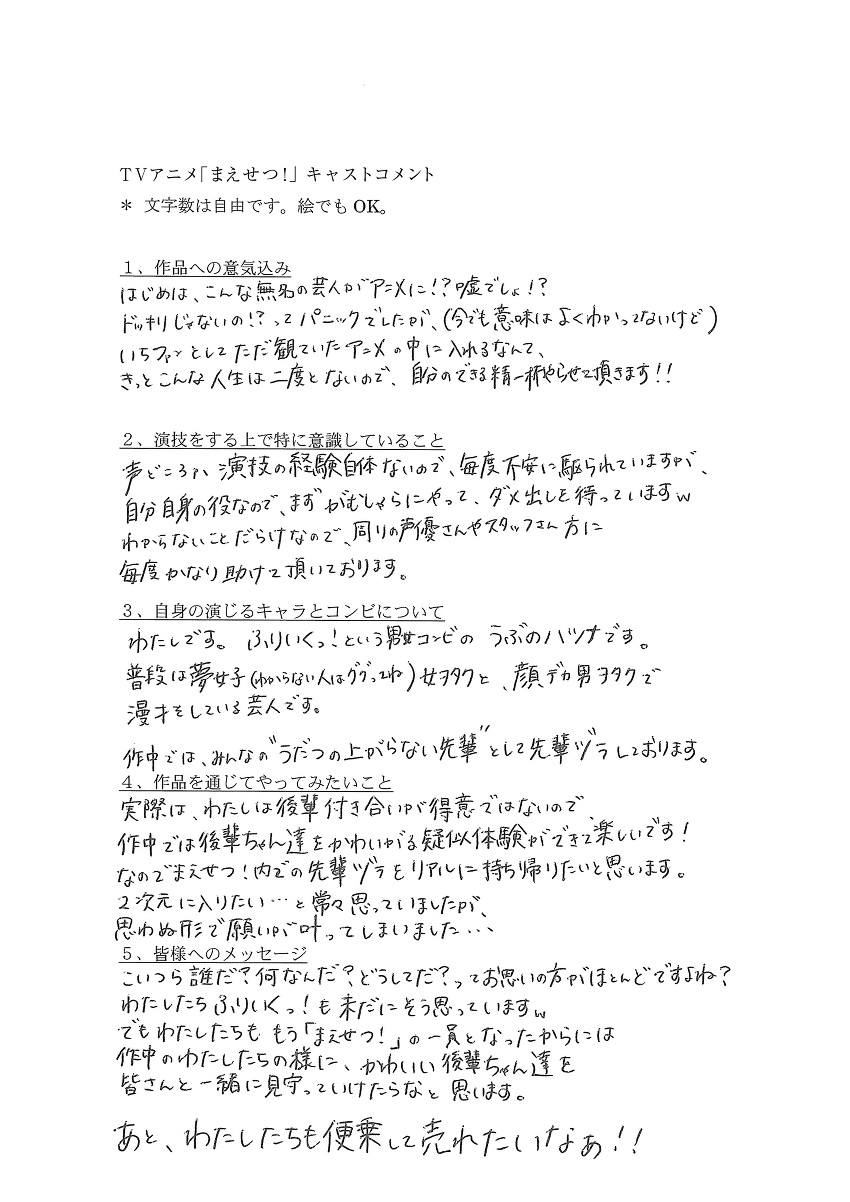 TVアニメ「まえせつ！」キャストコメント
＊ 文字数は自由です。絵でも OK。
１、作品への意気込み
はじめは、こんな無名の芸人がアニメに!?嘘でしょ!?
ドッキリじゃないの!?ってパニックでしたが、(今でも意味はよくわかってないけど)
いちファンとしてただ観ていたアニメの中に入れるなんて、
きっとこんな人生は二度とないので、自分のできる精一杯やらせて頂きます!!
２、演技をする上で特に意識していること
声どころか、演技の経験自体ないので、毎度不安に駆られていますが、
自分自身の役なので、まずがむしゃらにやって、ダメ出しを待っていますw
わからないことだらけなので、周りの声優さんやスタッフさん方に
毎度かなり助けて頂いております。
３、自身の演じるキャラとコンビについて
わたしです。ふりいくっ！という男女コンビのうぶのハツナです。
普段は夢女子(わからない人はググってね)女ヲタクと、顔デカ男ヲタクで
漫才をしている芸人です。
作中では、みんなの"うだつの上がらない先輩"として先輩ヅラしております。
４、作品を通じてやってみたいこと
実際は、わたしは後輩付き合いが得意ではないので、
作中では後輩ちゃん達をかわいがる疑似体験ができて楽しいです！
なのでまえせつ！内での先輩ヅラをリアルに持ち帰りたいと思います。
２次元に入りたい…と常々思っていましたが、
思わぬ形で願いが叶ってしまいました…
５、皆様へのメッセージ
こいつら誰だ？何なんだ？どうしてだ？ってお思いの方がほとんどですよね？
わたしたちふりいくっ！も未だにそう思っていますw
でもわたしたちも もう「まえせつ！」の一員となったからには
作中のわたしたちの様に、かわいい後輩ちゃん達を
皆さんと一緒に見守っていけたらなと思います。
あと、わたしたちも便乗して売れたいなぁ!!